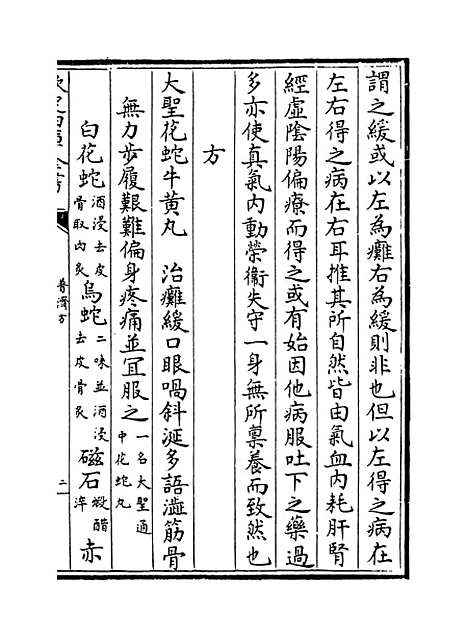 謂之緩或以左為癱右為緩則非也但以左得之病在
左右得之病在右耳推其所自然皆由氣血内耗肝腎
經虛陰陽偏療而得之或有始因他病服吐下之藥過
多亦使真氣内動榮衛失守一身無所禀養而致然也
方
大聖花蛇牛黄丸 治癱緩口眼喎斜涎多語澁筋骨
無力步履艱難偏身疼痛並宜服之一名大聖通中花蛇丸
白花蛇酒浸去皮骨取肉炙 烏蛇二味並酒浸去皮骨炙 磁石煅醋淬 赤
普濟方
二